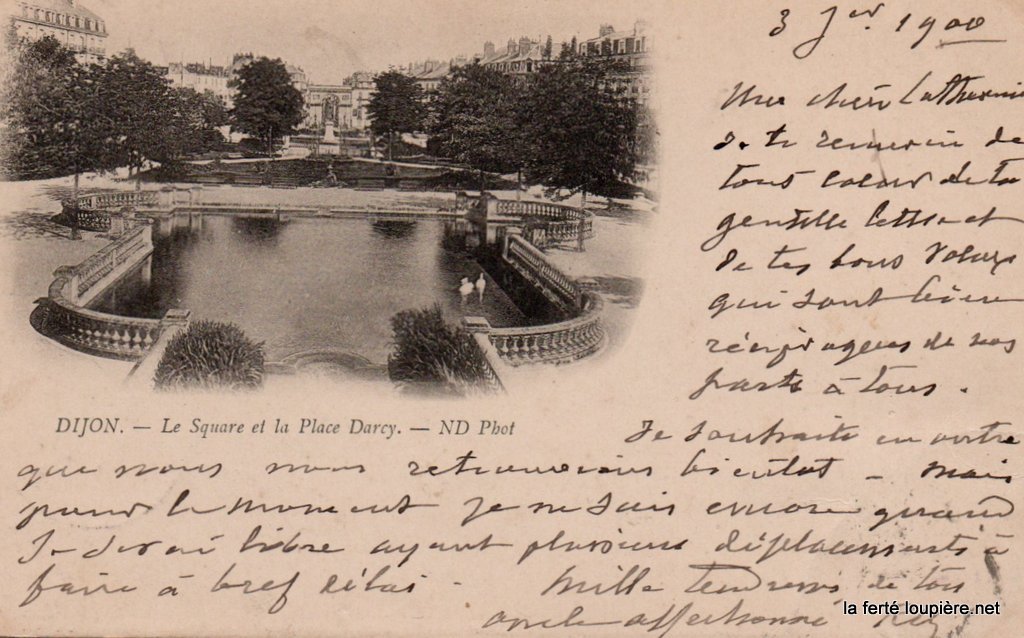 3 Jer 1900
Ma chère Catherine
Je te remercie de
tout cœur de ta
gentille lettre et
de tes bons vœux
qui sont bien
réciproques de nos
parts à tous.
DIJON. — Le Square et la Place Darcy. — ND Phot
Je souhaite en outre
que nous nous retrouvions bientôt - mais
pour le moment je ne sais encore quand
Je serai libre ayant plusieurs déplacements à
faire à bref délai.
Mille tendresses de ton
oncle affectionné
la ferté loupière.net